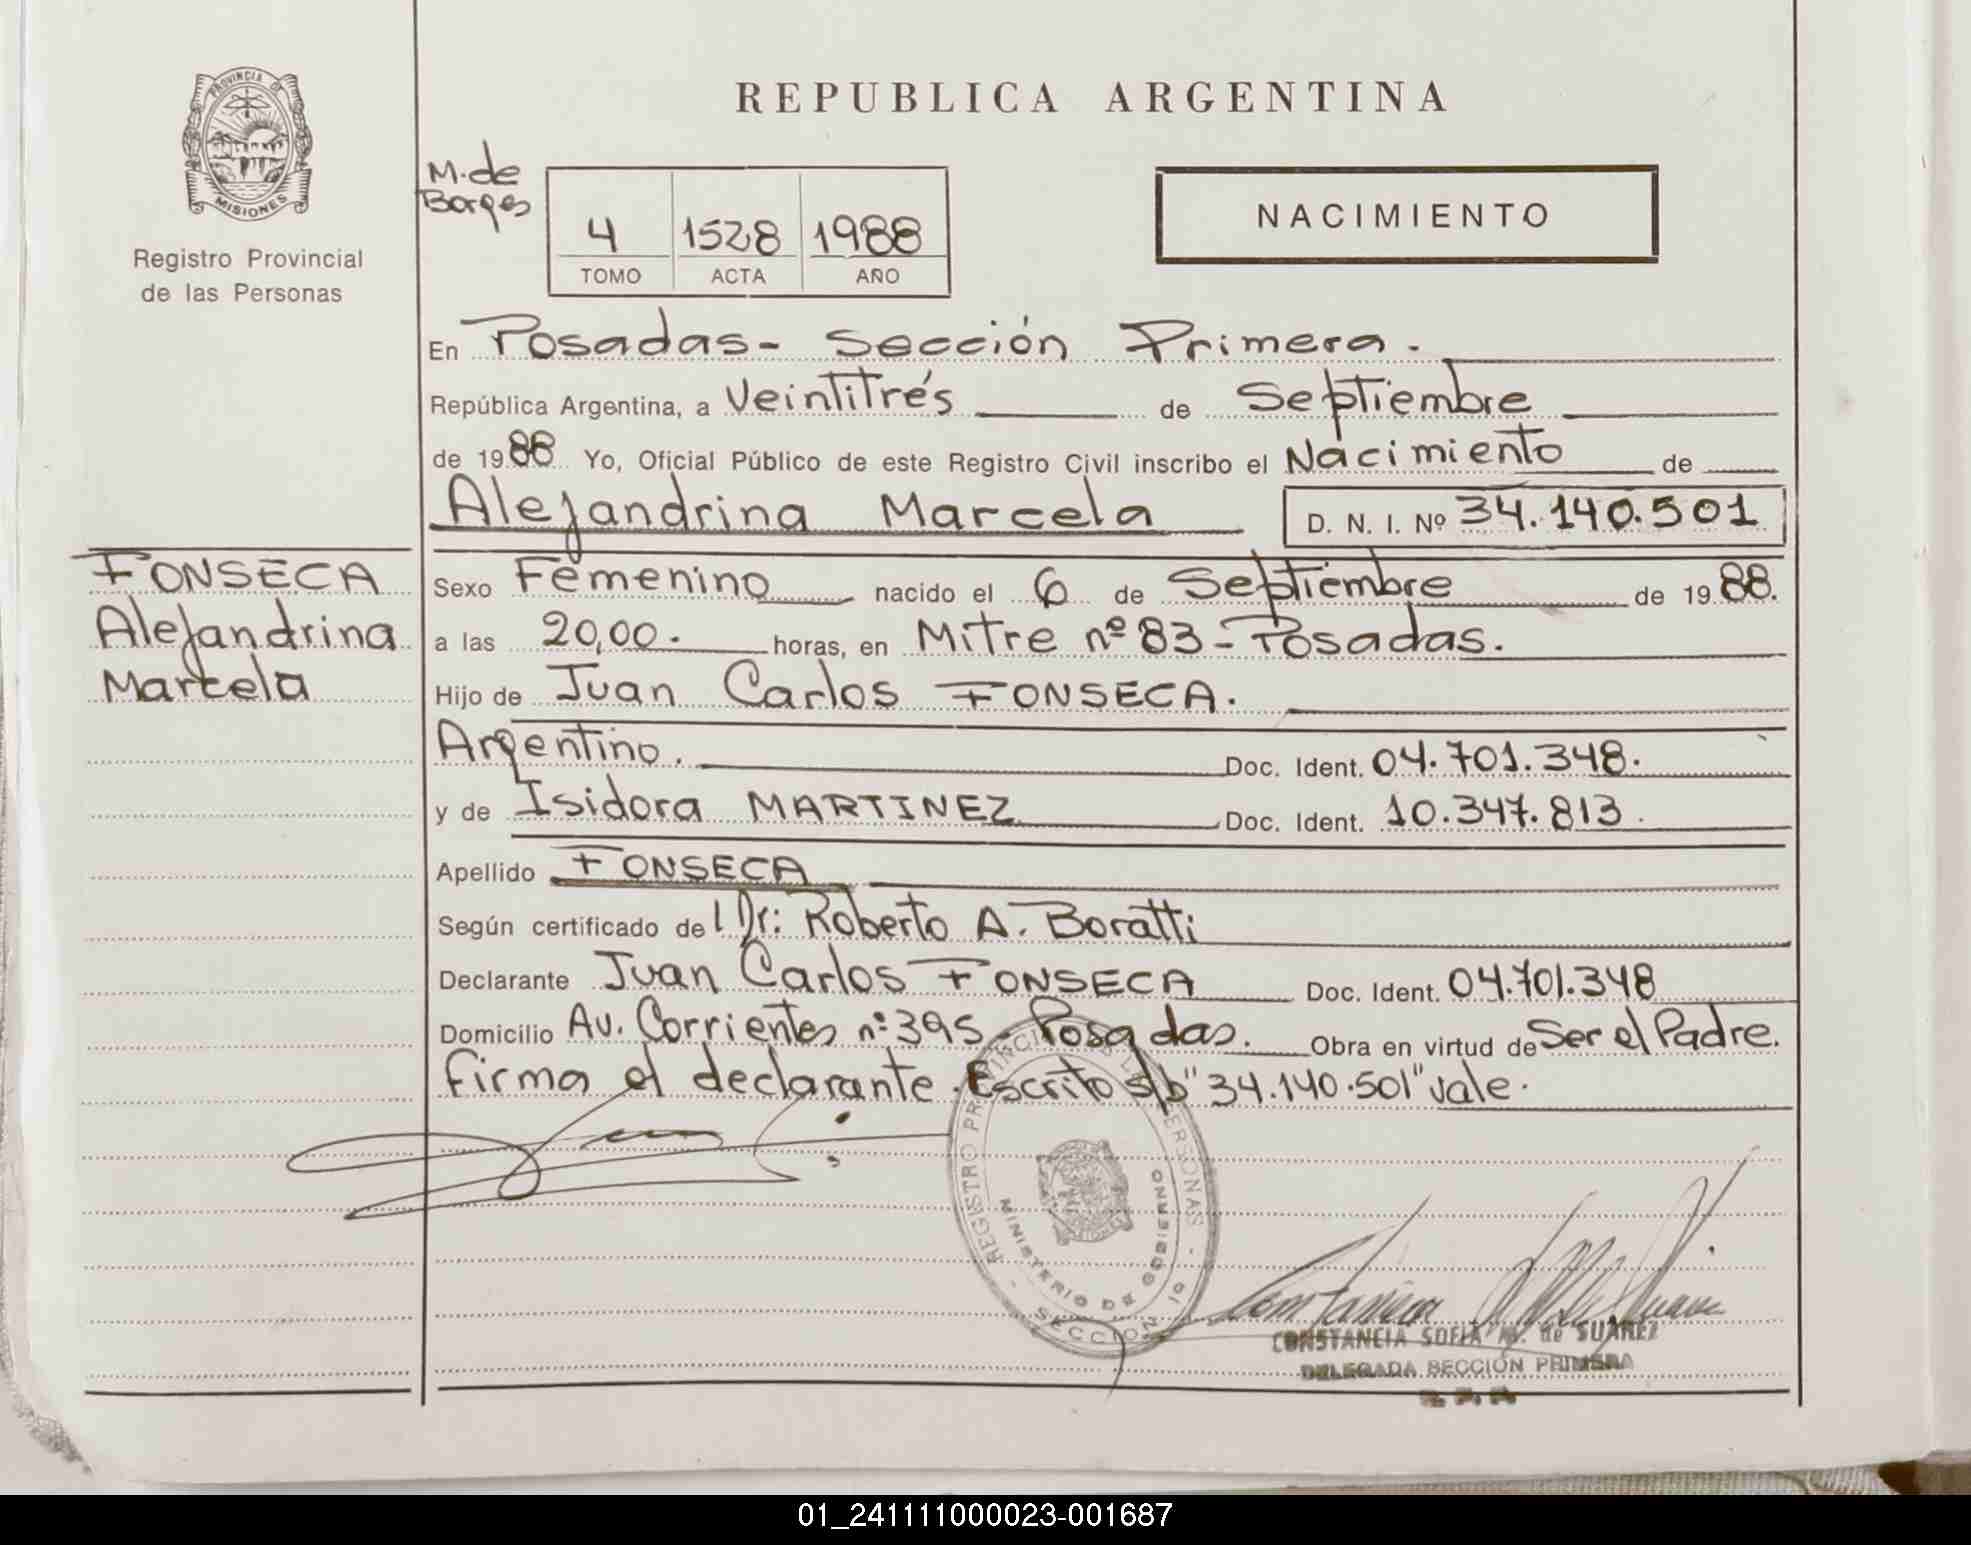 PROVINCIA DE
MISIONES
Registro Provincial
de las Personas
REPUBLICA ARGENTINA
M. de
Borges
4 1528 1988
TOMO ACTA AÑO
NACIMIENTO
En Posadas - Sección Primera.
República Argentina, a Veintitrés de Septiembre
de 1988 Yo, Oficial Público de este Registro Civil inscribo el Nacimiento de
Alejandrina Marcela D. N. I. Nº 34.140.501
FONSECA
Alejandrina
Marcela
Sexo Femenino nacido el 6 de Septiembre de 1988.
a las 20,00. horas, en Mitre nº 83 - Posadas.
Hijo de Juan Carlos FONSECA.
Argentino. Doc. Ident. 04.701.348.
y de Isidora MARTINEZ Doc. Ident. 10.347.813.
Apellido FONSECA
Según certificado del Dr: Roberto A. Boratti
Declarante Juan Carlos FONSECA Doc. Ident. 04.701.348
Domicilio Av. Corrientes nº 395 - Posadas. Obra en virtud de Ser el Padre.
Firma el declarante. Escrito s/b "34.140.501" vale.
REGISTRO PROVINCIAL DE LAS PERSONAS
MINISTERIO DE GOBIERNO
SECCION 1º
CONSTANCIA SOFIA M. de SUAREZ
DELEGADA SECCION PRIMERA
01_241111000023-001687